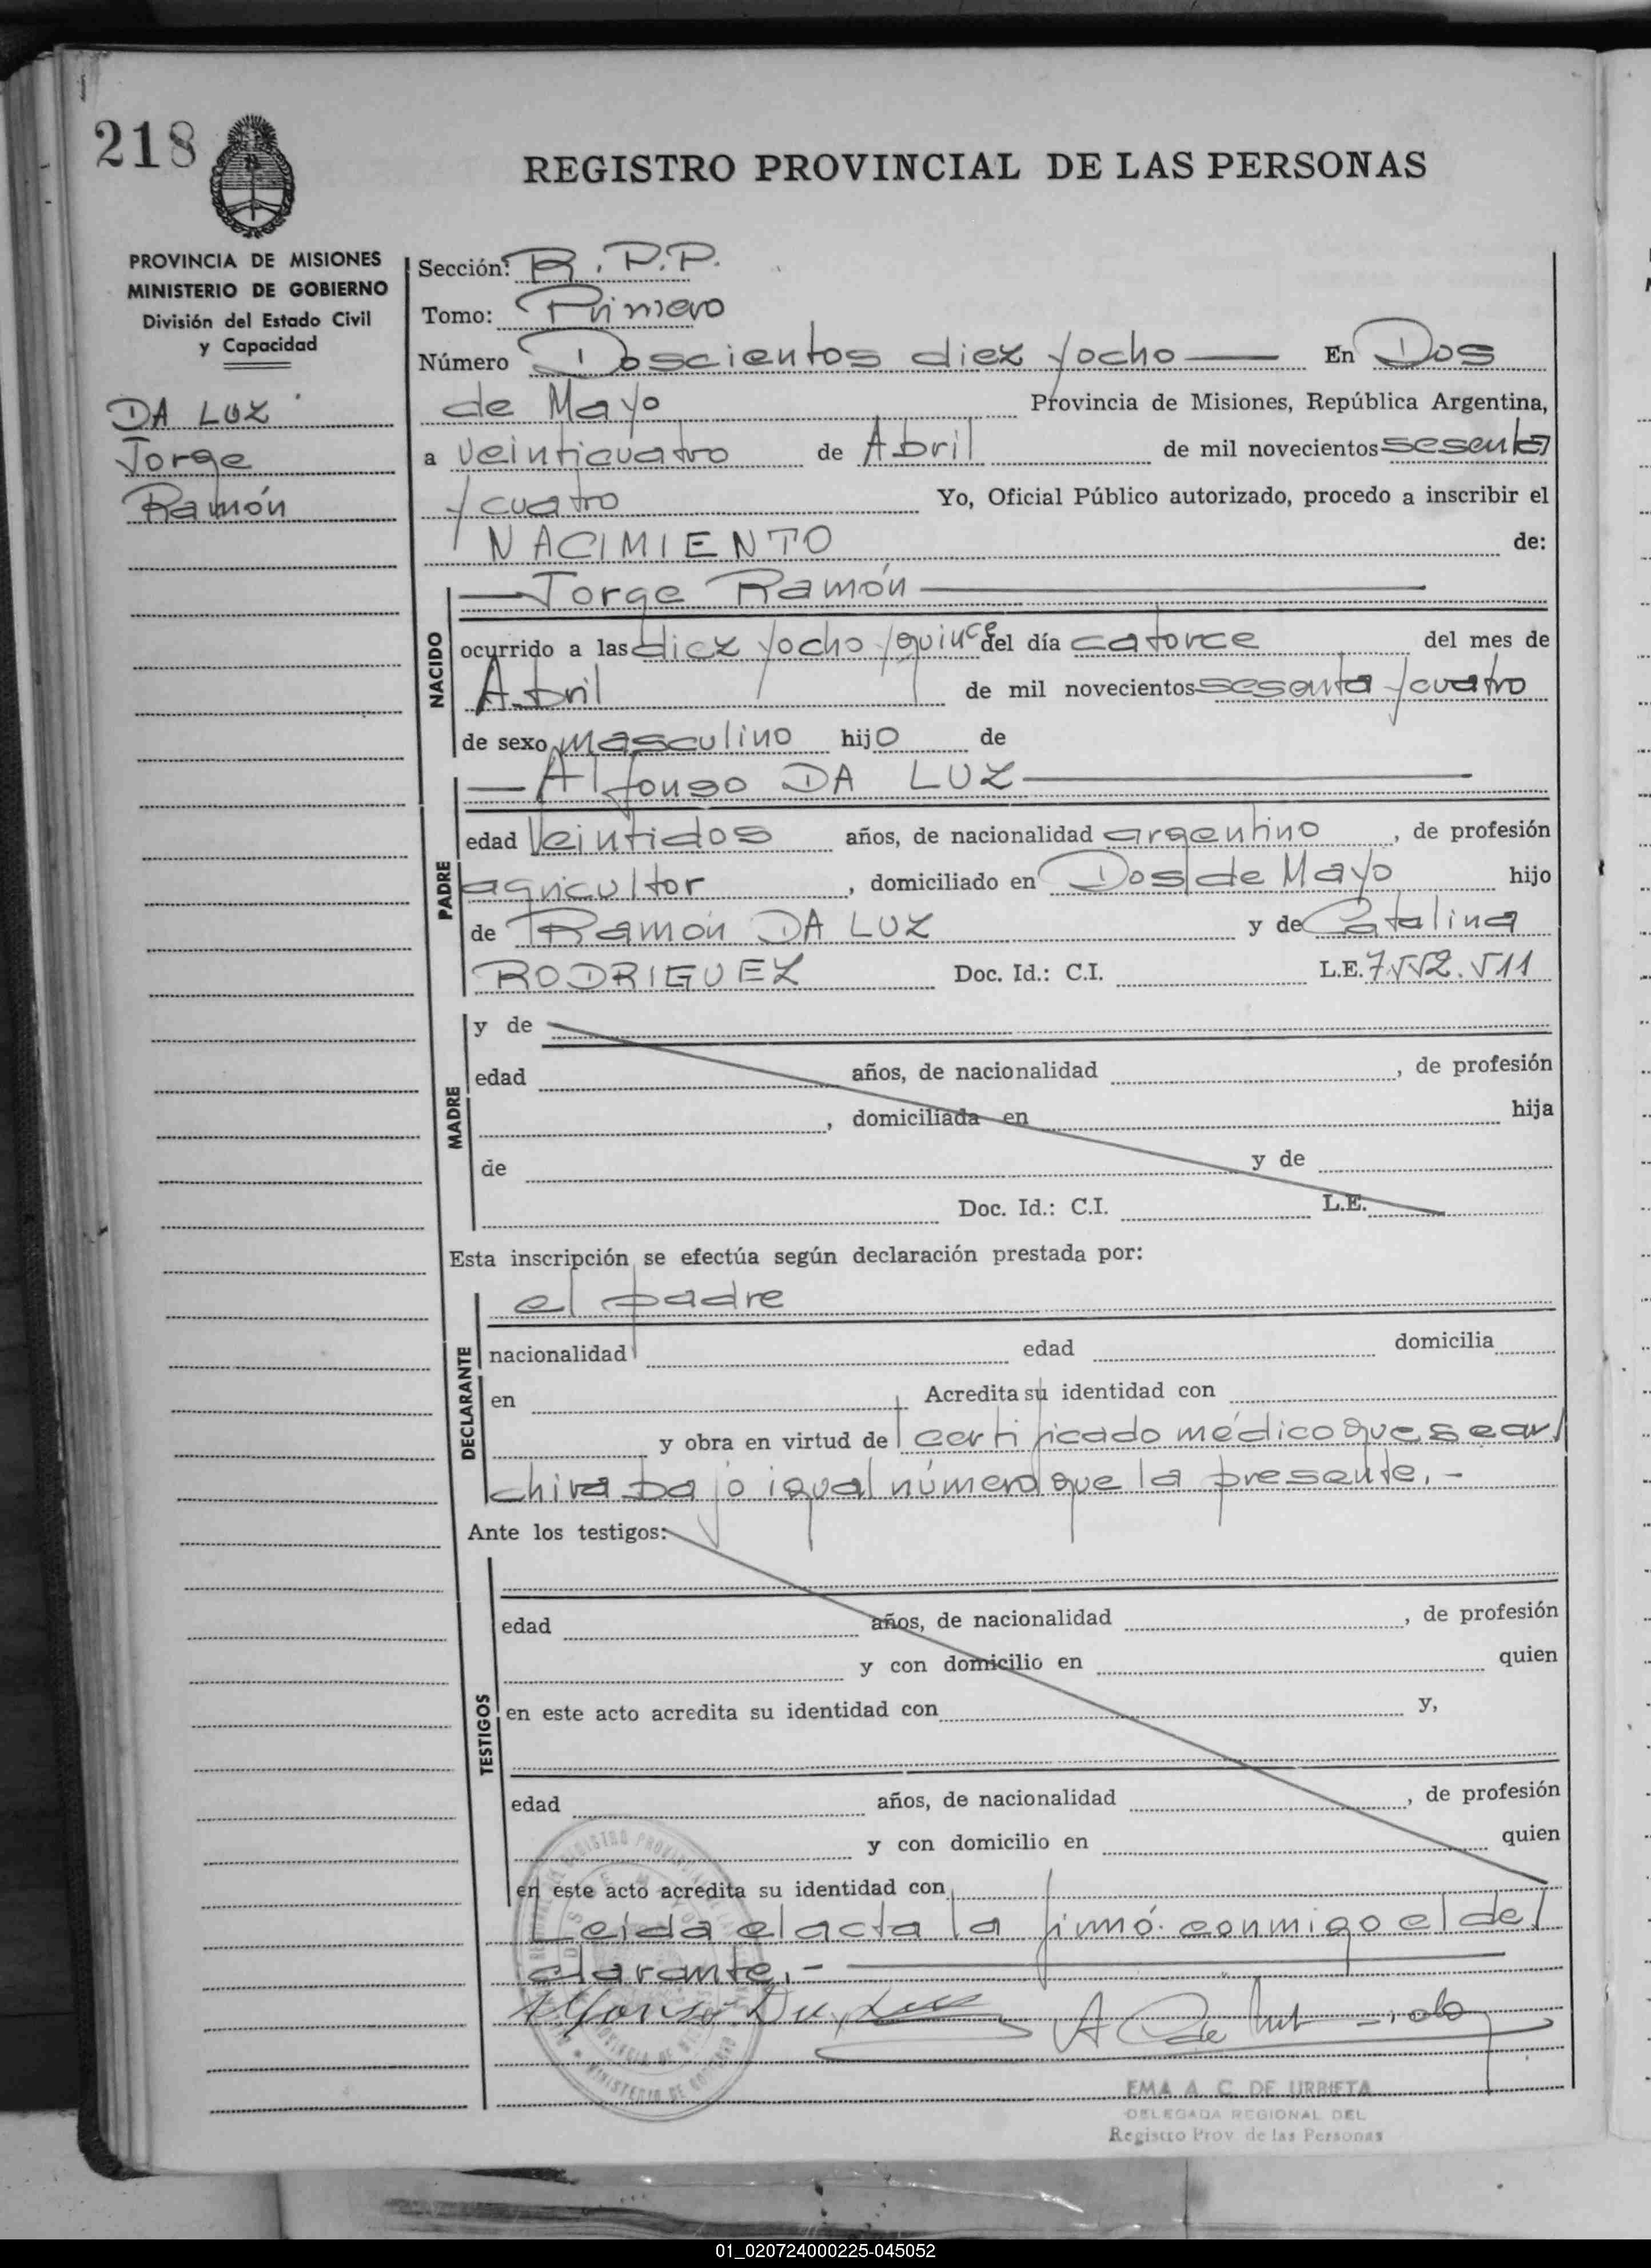 218
REGISTRO PROVINCIAL DE LAS PERSONAS
PROVINCIA DE MISIONES
MINISTERIO DE GOBIERNO
División del Estado Civil
y Capacidad
DA LUZ
Jorge
Ramón
Sección: R. P.P.
Tomo: Primero
Número Doscientos diez yocho En Dos
de Mayo Provincia de Misiones, República Argentina,
a veinticuatro de Abril de mil novecientos sesenta
y cuatro Yo, Oficial Público autorizado, procedo a inscribir el
NACIMIENTO de:
NACIDO
Jorge Ramón
ocurrido a las diez yocho y quince del día catorce del mes de
Abril de mil novecientos sesenta y cuatro
de sexo masculino hijo de
PADRE
Alfonso DA LUZ
edad Veintidos años, de nacionalidad argentino, de profesión
agricultor, domiciliado en Dos de Mayo hijo
de Ramón DA LUZ y de Catalina
RODRIGUEZ Doc. Id.: C.I. L.E. 7.552.511
MADRE
y de
edad años, de nacionalidad , de profesión
, domiciliada en hija
de y de
Doc. Id.: C.I. L.E.
Esta inscripción se efectúa según declaración prestada por:
DECLARANTE
el padre
nacionalidad edad domicilia
en Acredita su identidad con
y obra en virtud del certificado médico que se ar/
chiva bajo igual número que la presente.-
Ante los testigos:
TESTIGOS
edad años, de nacionalidad , de profesión
y con domicilio en quien
en este acto acredita su identidad con y,
edad años, de nacionalidad , de profesión
y con domicilio en quien
en este acto acredita su identidad con
Leida el acta la firmó conmigo el de/
clarante.-
Alfonso Da Luz
EMA A. C. DE URRIETA
DELEGADA REGIONAL DEL
Registro Prov de las Personas
01_020724000225-045052